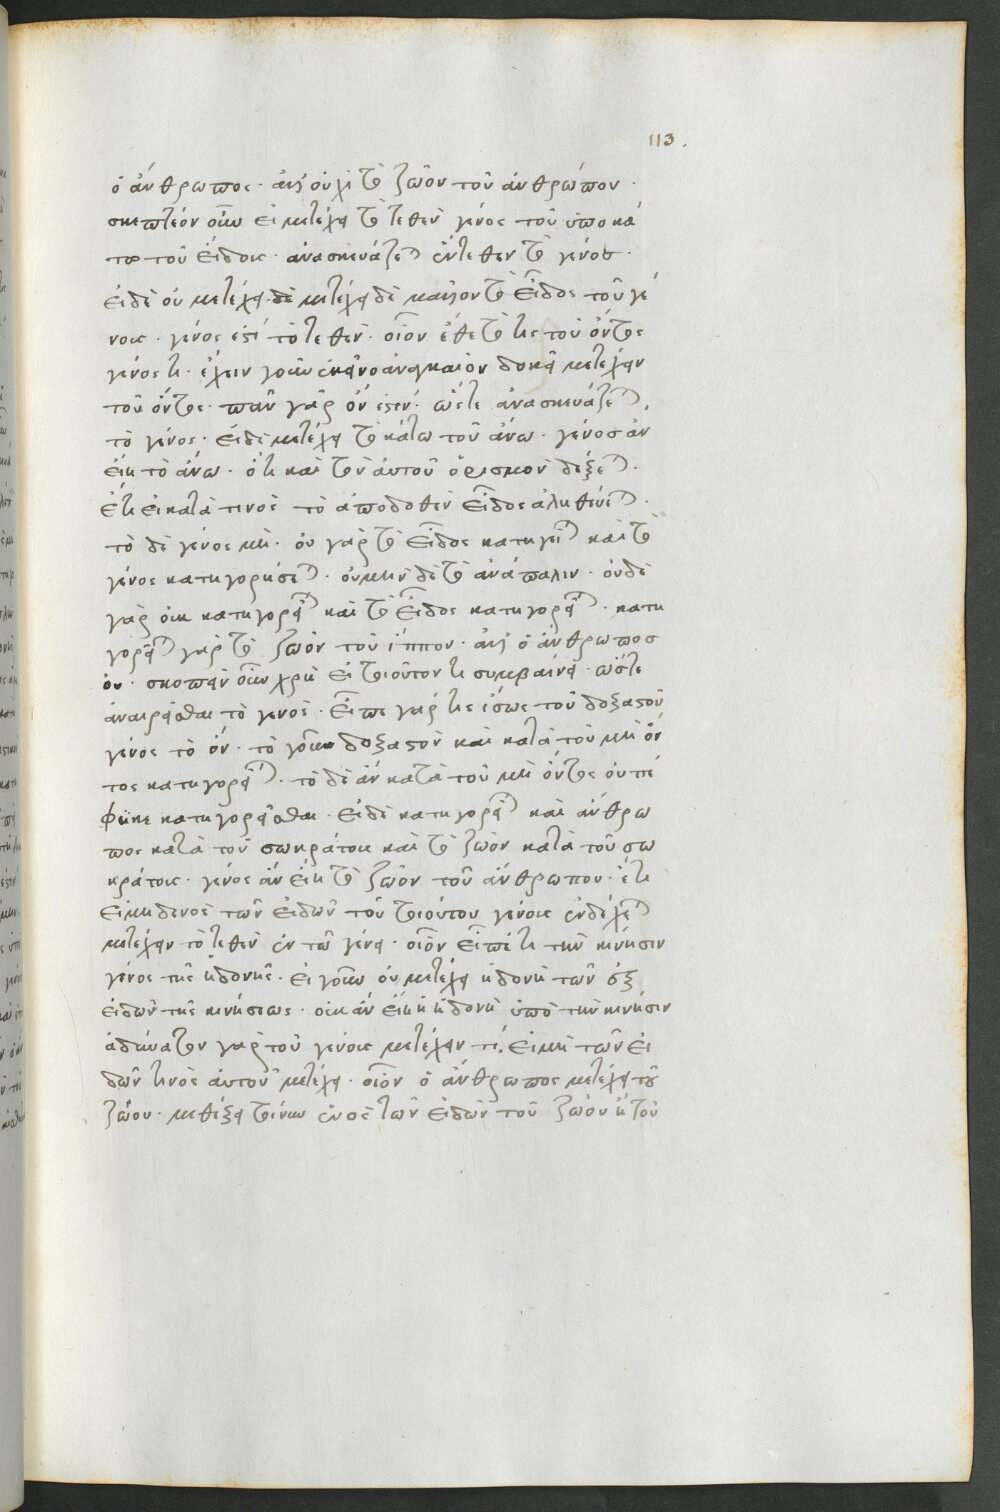 113.
ὁ ἄνθρωπος· ἀλλ' οὐχὶ τὸ ζῶον τοῦ ἀνθρώπου·
σκεπτέον οὖν εἰ μετέχει τὸ τεθὲν γένος τοῦ ὑποκά
τω τοῦ εἴδους· ἀνασκευάζεται ἐντεθεν τὸ γένος·
εἰ δὲ οὐ μετέχει δὲ μετέχει δὲ μᾶλλον τὸ εἶδος τοῦ γέ
νους· γένος ἐστὶ τὸ τεθὲν· οἷον ἔθετό τις τοῦ ὄντος
γένος τι· ἔχειν γοῦν ἐκεῖνο ἀναγκαῖον δοκεῖ μετέχειν
τοῦ ὄντος· πᾶν γὰρ ὄν ἐστιν· ὥστε ἀνασκευάζεται
τὸ γένος· εἰ δὲ μετέχει τὸ κάτω τοῦ ἄνω· γένος ἂν
εἴη τὸ ἄνω· ὅτι καὶ τὸν αὐτοῦ ὁρισμὸν δέξεται·
ἔτι εἰ κατά τινος τὸ ἀποδοθὲν εἶδος ἀληθεύεται·
τὸ δὲ γένος μή· οὗ γὰρ τὸ εἶδος κατηγορεῖται καὶ τὸ
γένος κατηγορήσεται· οὐ μὴν δὲ τὸ ἀνάπαλιν· οὐδὲ
γὰρ οὐ κατηγορεῖται καὶ τὸ εἶδος κατηγορεῖται· κατη
γορεῖται γὰρ τὸ ζῶον τοῦ ἵππου· ἀλλ' ὁ ἄνθρωπος
οὐ· σκοπεῖν οὖν χρὴ εἰ τοιοῦτόν τι συμβαίνει· ὥστε
ἀναιρεῖσθαι τὸ γένος· εἶπε γάρ τις ἴσως τοῦ δοξαστοῦ
γένος τὸ ὄν· τὸ γοῦν δοξαστὸν καὶ κατὰ τοῦ μὴ ὄν
τος κατηγορεῖται· τὸ δὲ ἂν κατὰ τοῦ μὴ ὄντος οὐ πέ
φυκε κατηγορεῖσθαι· εἰ δὲ κατηγορεῖται καὶ ἄνθρω
πος κατὰ τοῦ σωκράτους καὶ τὸ ζῶον κατὰ τοῦ σω
κράτους· γένος ἂν εἴη τὸ ζῶον τοῦ ἀνθρώπου· ἔτι
εἰ μηδενὸς τῶν εἰδῶν τοῦ τοιούτου γένους ἐνδέχεται
μετέχειν τὸ τεθὲν ἐν τῷ γένει· οἷον εἶπέ τι τὴν κίνησιν
γένος τῆς ἡδονῆς· εἰ γοῦν οὐ μετέχει ἡδονὴ τῶν ἓξ
εἰδῶν τῆς κινήσεως· οὐκ ἂν εἴη ἡ ἡδονὴ ὑπὸ τὴν κίνησιν
ἀδύνατον γὰρ τοῦ γένους μετέχειν τι, εἰ μὴ τῶν εἰ
δῶν τινὸς αὐτοῦ μετέχει· οἷον ὁ ἄνθρωπος μετέχει τοῦ
ζώου· μεθέξει τοίνυν ἑνὸς τῶν εἰδῶν τοῦ ζώου ἢ τοῦ